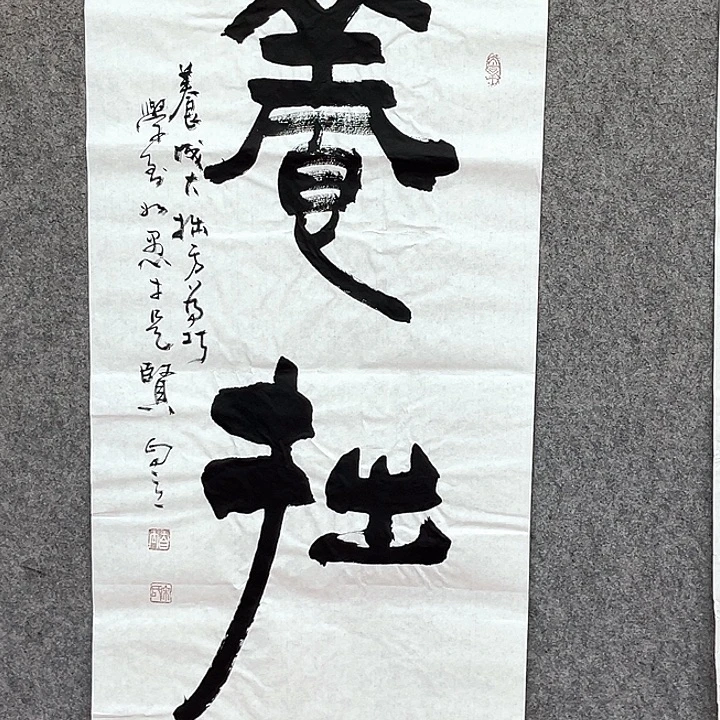 養拙
養成大拙方為巧
學到如愚才是賢